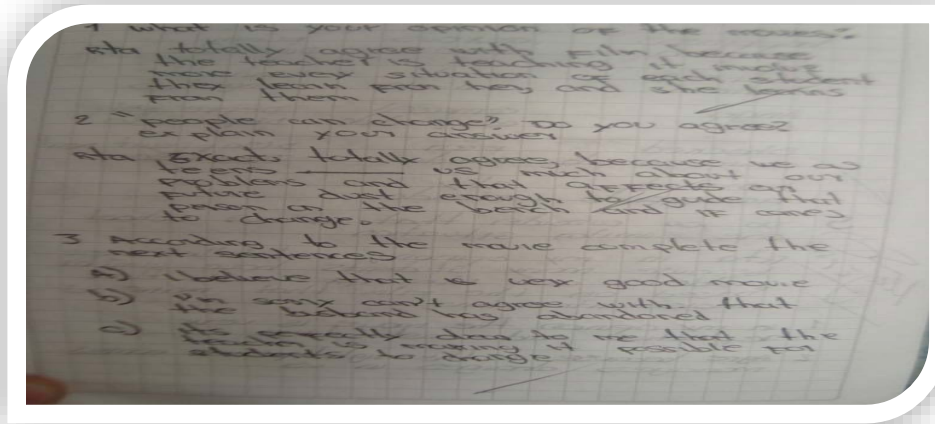 1 what is your opinion of the movies?
Rta totally agree with film because
the teacher is teaching it makes
more every situation of each student
they learn from her, and she learns
from them
2 "people can change" Do you agree?
explain your answer
Rta Exact, totally agree, because we as
teens us much about our
problems and that affects
future dust enough to guide that
person on the bench and if comes
to change.
3 According to the movie complete the
next sentences
a) I believe that is very good movie
b) I'm sorry can't agree with that
the husband has abandoned
c) Its to me that the
teacher is making it possible for
students to change